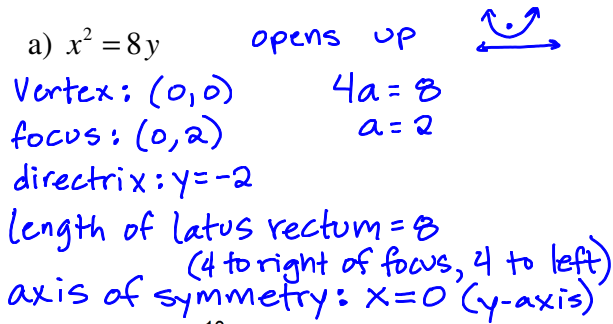 a) x² = 8y opens up
Vertex: (0,0) 4a = 8
focus: (0,2) a = 2
directrix: y = -2
length of latus rectum = 8
(4 to right of focus, 4 to left)
axis of symmetry: x = 0 (y-axis)